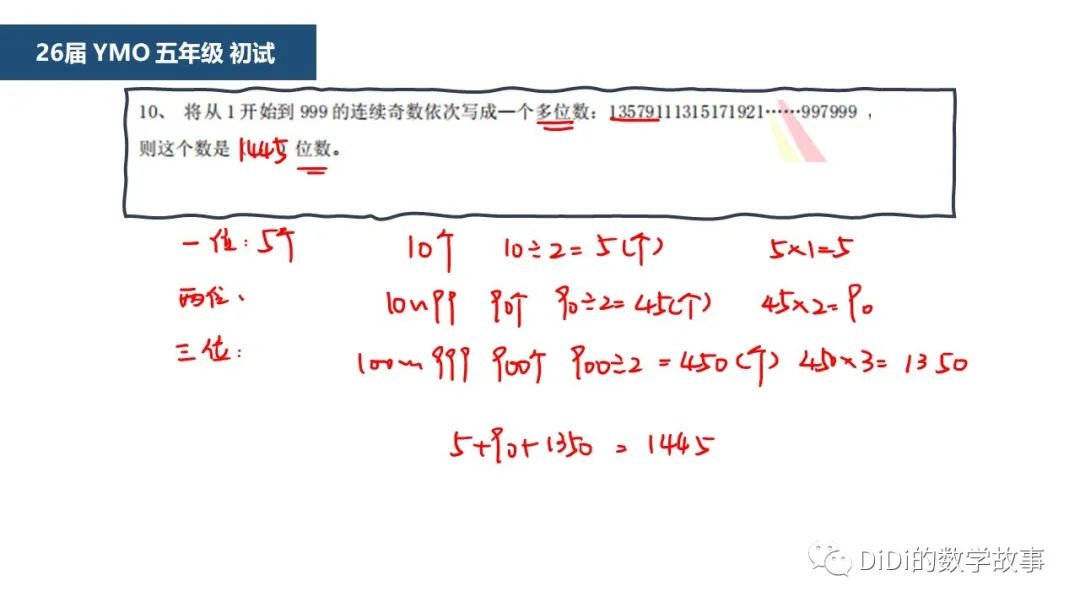 26届 YMO 五年级 初试
10、 将从 1 开始到 999 的连续奇数依次写成一个多位数：13579111315171921……997999 ，
则这个数是 1445 位数。
一位：5个 10个 10÷2=5(个) 5×1=5
两位、 10~99 90个 90÷2=45(个) 45×2=90
三位： 100~999 900个 900÷2=450(个) 450×3=1350
5+90+1350=1445
DiDi的数学故事